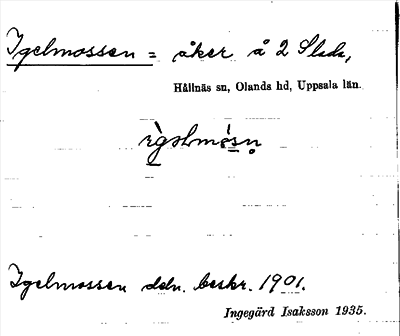 Igelmossen = åker å 2 Slada,
Hållnäs sn, Olands hd, Uppsala län.
Igelmossen ddn. beskr. 1901.
Ingegärd Isaksson 1935.